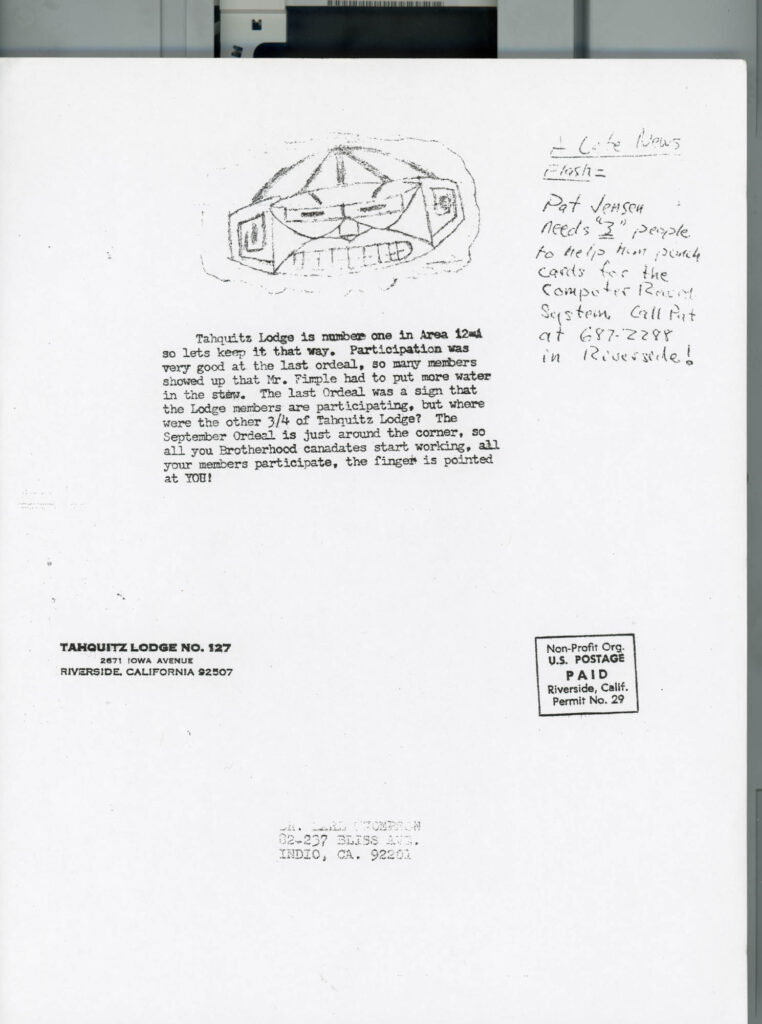 A Late News
Flash-
Pat Jensen
needs "3" people
to help him punch
cards for the
Computer Record
System. Call Pat
at 687-2288
in Riverside!
Tahquitz Lodge is number one in Area 12-A
so lets keep it that way. Participation was
very good at the last ordeal, so many members
showed up that Mr. Fimple had to put more water
in the stew. The last Ordeal was a sign that
the Lodge members are participating, but where
were the other 3/4 of Tahquitz Lodge? The
September Ordeal is just around the corner, so
all you Brotherhood canadates start working, all
your members participate, the finger is pointed
at YOU!
TAHQUITZ LODGE NO. 127
2671 IOWA AVENUE
RIVERSIDE, CALIFORNIA 92507
Non-Profit Org.
U.S. POSTAGE
PAID
Riverside, Calif.
Permit No. 29
THOMPSON
82-237 BLISS AVE.
INDIO, CA. 92201